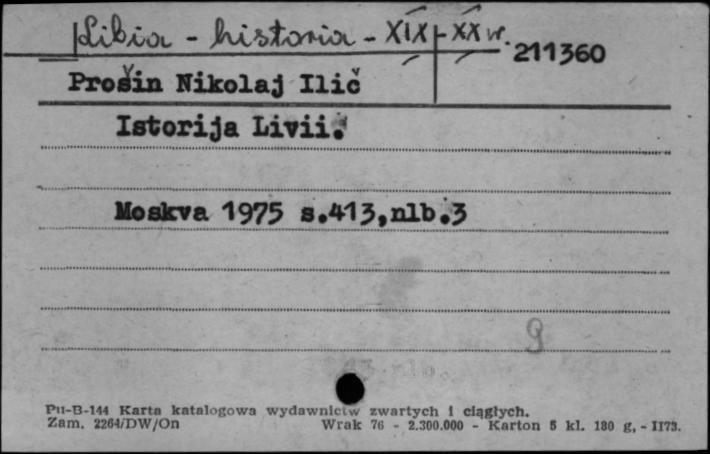 Libia - historia - XIX-XX w.
211360
Prošin Nikolaj Ilič
Istorija Livii.
Moskva 1975 s.413,nlb.3
9
Pu-B-144 Karta katalogowa wydawnictw zwartych i ciągłych.
Zam. 2264/DW/On Wrak 76 - 2.300.000 - Karton 5 kl. 180 g, - II73.